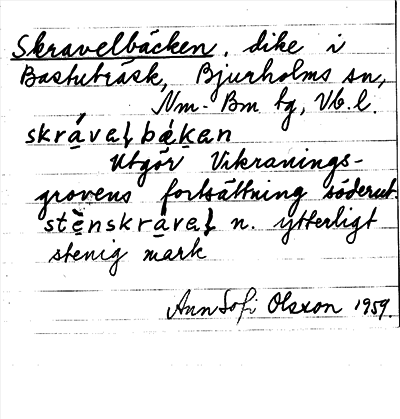 Skravelbäcken, dike i
Bastuträsk, Bjurholms sn,
Nm-Bm tg, Vb. l.
skrávelbǽkan
Utgör Vikranings-
grovens fortsättning söderut.
stènskrável n. ytterligt
stenig mark
Ann Sofi Olsson 1959.